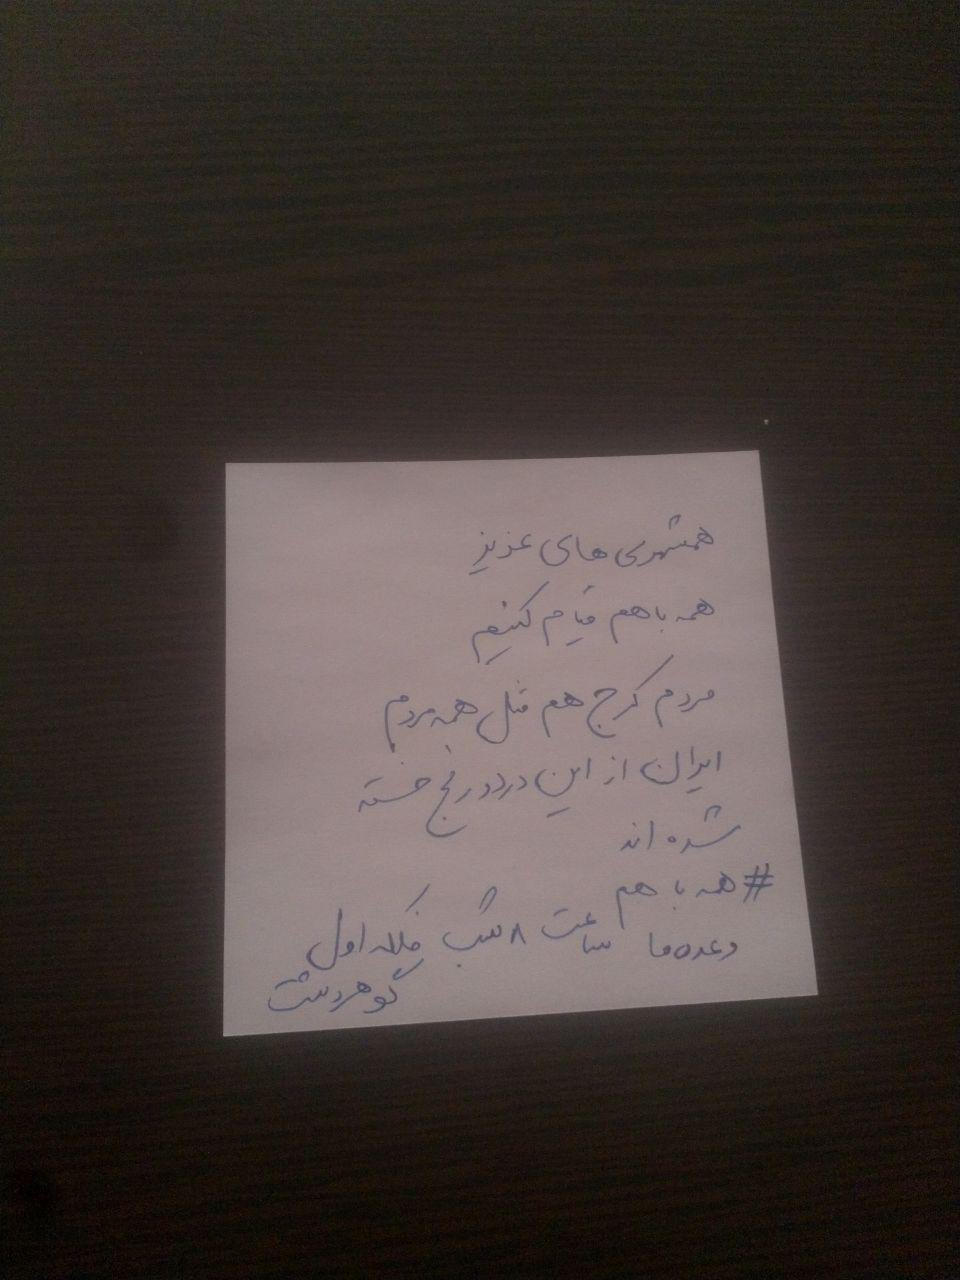 همشهری های عزیز
همه باهم قیام کنیم
مردم کرج هم مثل همه مردم
ایران از این درد و رنج خسته
شده اند
#همه با هم
وعده ما ساعت ۸ شب فلکه اول
گوهردشت